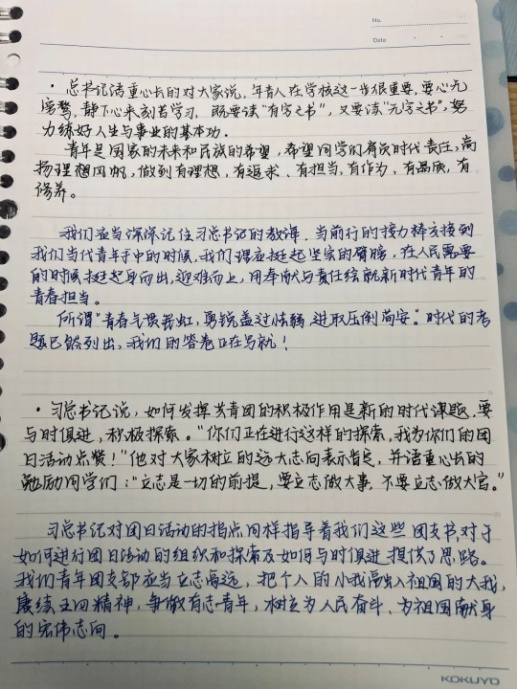 No.
Date
· 总书记语重心长的对大家说,年青人在学校这一步很重要,要心无
旁骛,静下心来刻苦学习,既要读“有字之书”,又要读“无字之书”,努
力练好人生与事业的基本功.
青年是国家的未来和民族的希望,希望同学们肩负时代责任,高
扬理想风帆,做到有理想,有追求、有担当,有作为,有品质,有
修养。
我们应当深深记住习总书记的教诲,当前行的接力棒交接到
我们当代青年手中的时候,我们理应挺起坚实的臂膀,在人民需要
的时候挺起身而出,迎难而上,用奉献与责任绘就新时代青年的
青春担当。
所谓“青春气贯长虹,勇锐盖过怯弱,进取压倒苟安”时代的考
题已然列出,我们的答卷正在写就!
· 习总书记说,如何发挥共青团的积极作用是新的时代课题,要
与时俱进,积极探索。“你们正在进行这样的探索,我为你们的团
日活动点赞!”他对大家树立的远大志向表示肯定,并语重心长的
勉励同学们:“立志是一切的前提,要立志做大事,不要立志做大官。”
习总书记对团日活动的指点同样指导着我们这些团支书,对于
如何进行团日活动的组织和探索及如何与时俱进提供了思路。
我们青年团支部应当立志高远,把个人的小我融入祖国的大我,
赓续五四精神,争做有志青年,树立为人民奋斗,为祖国献身
的宏伟志向。
KOKUYO